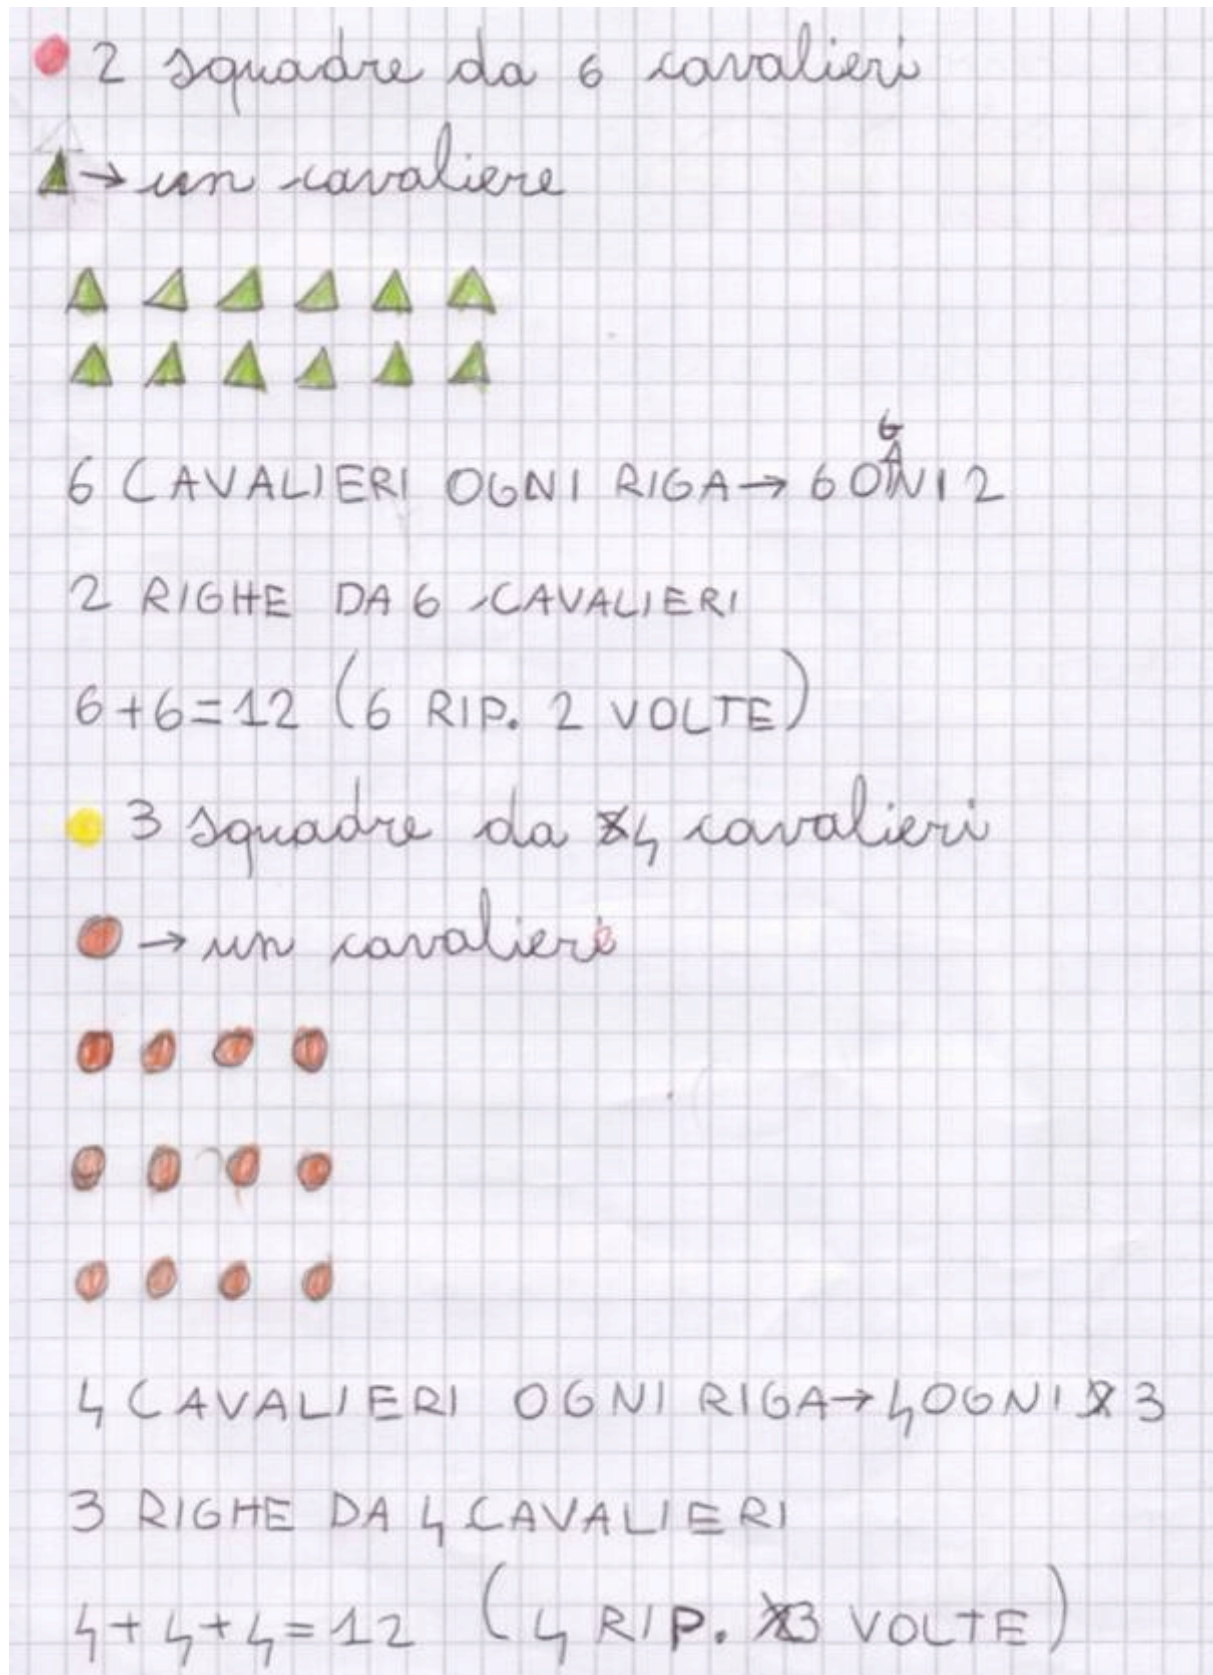 2 squadre da 6 cavalieri
→ un cavaliere
6 CAVALIERI OGNI RIGA → 6 OGNI 2
2 RIGHE DA 6 CAVALIERI
6+6=12 (6 RIP. 2 VOLTE)
3 squadre da 4 cavalieri
→ un cavaliere
4 CAVALIERI OGNI RIGA → 4 OGNI 3
3 RIGHE DA 4 CAVALIERI
4+4+4=12 (4 RIP. 3 VOLTE)